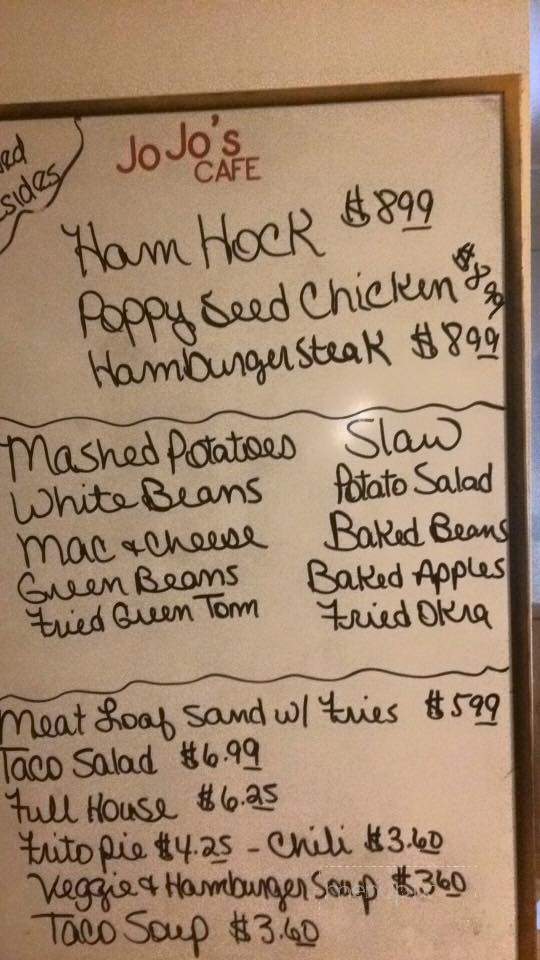 sides
JoJo's
CAFE
Ham Hock $8 99
Poppy Seed Chicken $8 99
Hamburger Steak $8 99
Mashed Potatoes Slaw
White Beans Potato Salad
Mac & Cheese Baked Beans
Green Beans Baked Apples
Fried Green Tom Fried Okra
Meat Loaf Sand w/ Fries $5 99
Taco Salad $6.99
Full House $6.25
Frito pie $4.25 - Chili $3.60
Veggie & Hamburger Soup $3 60
Taco Soup $3.60